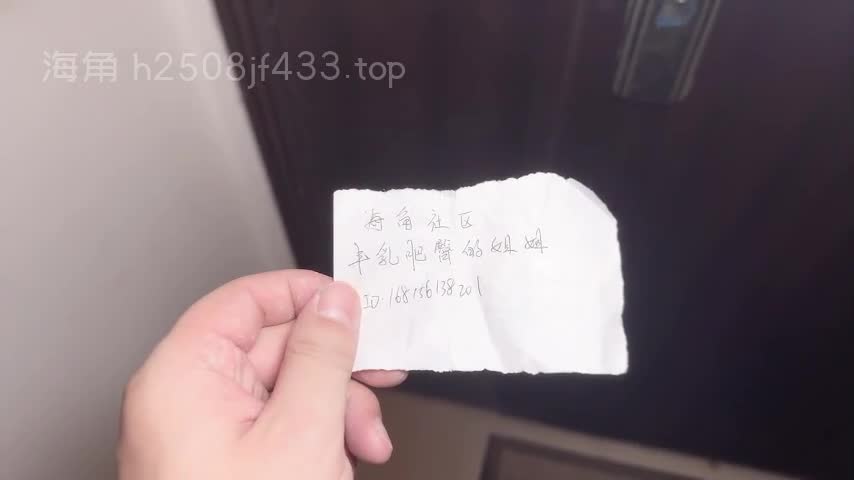 海角 h2508jf433.top
海角社区
丰乳肥臀的姐姐
ID.168156138201